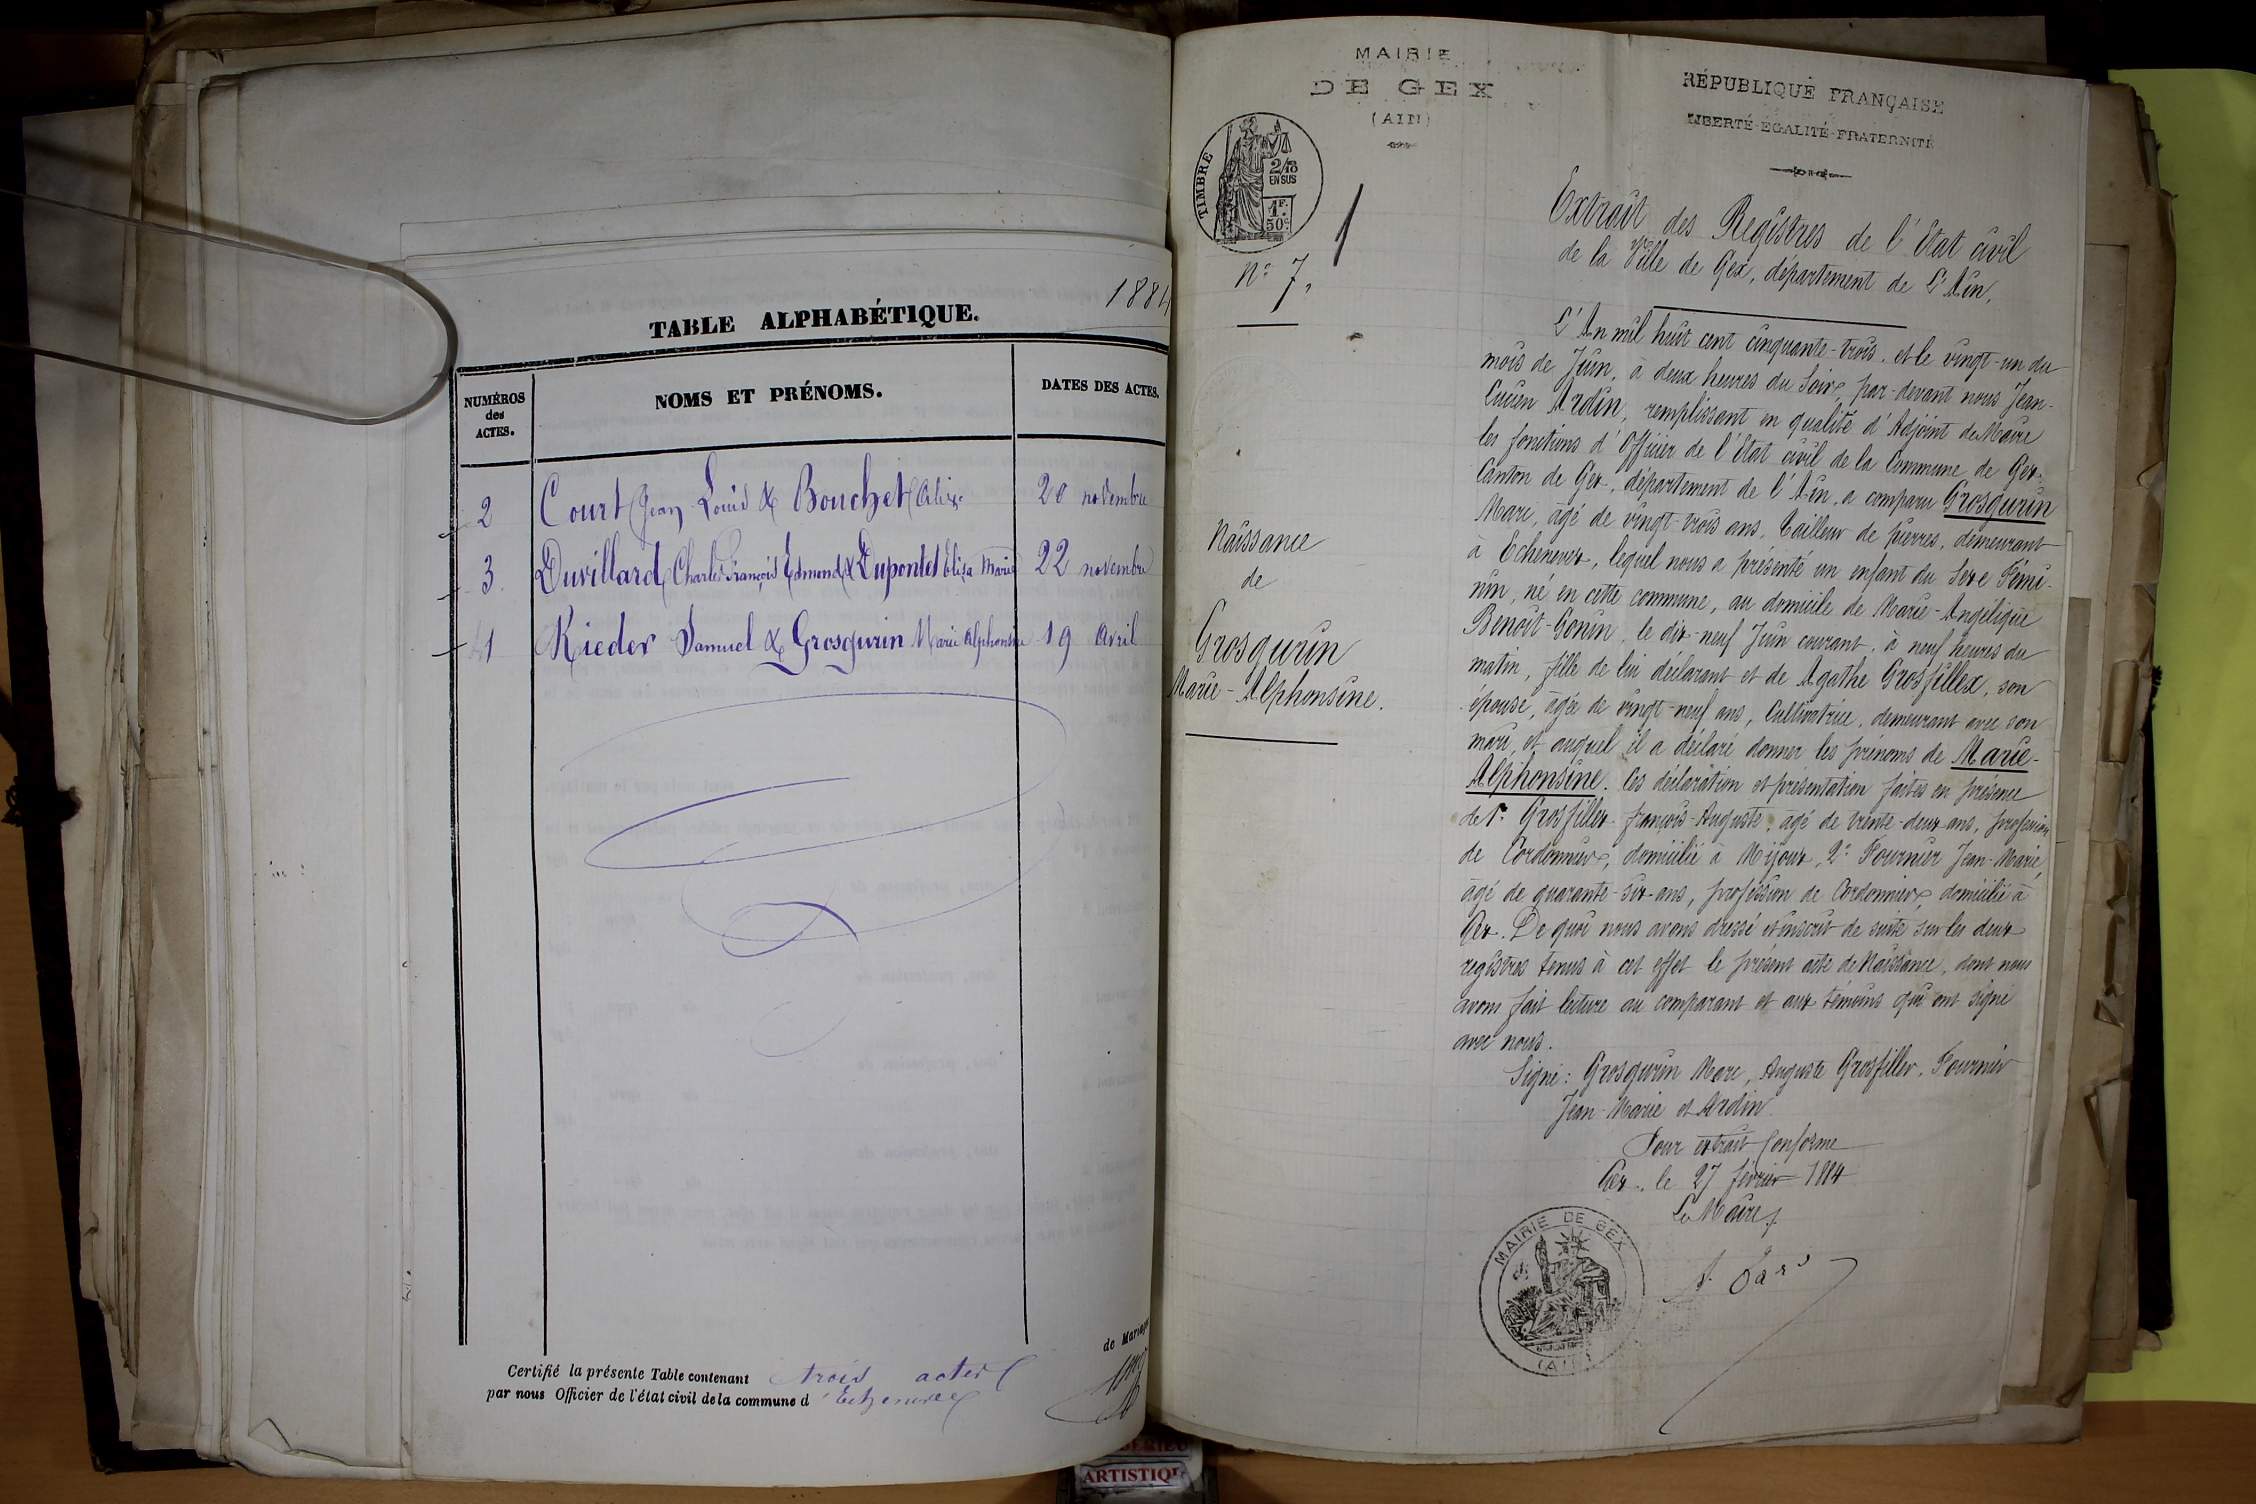 1884
TABLE ALPHABÉTIQUE.
NUMÉROS des ACTES.
NOMS ET PRÉNOMS.
DATES DES ACTES.
2 Court Jean Louis & Bouchet Alix 20 novembre
3 Duvillard Charles François Edmond & Dupontet Eliza Marie 22 novembre
1 Rieder Samuel & Grosgurin Marie Alphonsine 19 Avril
de Mariage
Certifié la présente Table contenant trois actes
par nous Officier de l'état civil de la commune d'Echenevex
MAIRIE
DE GEX
(AIN)
TIMBRE
2/10
EN SUS
1F.
50c
1
N° 7,
Naissance
de
Grosgurin
Marie-Alphonsine.
RÉPUBLIQUE FRANÇAISE
LIBERTÉ-EGALITÉ-FRATERNITÉ
Extrait des Registres de l'Etat civil
de la Ville de Gex, département de l'Ain,
L'An mil huit cent cinquante-trois, et le vingt-un du
mois de Juin, à deux heures du Soir, par-devant nous Jean-
Lucien Ardin, remplissant en qualité d'Adjoint de Maire
les fonctions d'Officier de l'Etat civil de la Commune de Gex.
Canton de Gex, département de l'Ain, a comparu Grosgurin
Marc, âgé de vingt-trois ans, Tailleur de pierres, demeurant
à Echenevex, lequel nous a présenté un enfant du Sexe Fémi-
nin, né en cette commune, au domicile de Marie-Angélique
Benoît-Gonin, le dix-neuf Juin courant, à neuf heures du
matin, fille de lui déclarant et de Agathe Grosfillex, son
épouse, âgée de vingt-neuf ans, Cultivatrice, demeurant avec son
mari, et auquel il a déclaré donner les prénoms de Marie-
Alphonsine. Ces déclaration et présentation faites en présence
de 1° Grosfillex François-Auguste, âgé de trente-deux ans, profession
de Cordonnier, domicilié à Mijoux, 2° Fournier Jean-Marie,
âgé de quarante-six ans, profession de Cordonnier, domicilié à
Gex. De quoi nous avons dressé et inscrit de suite sur les deux
registres tenus à cet effet le présent acte de Naissance, dont nous
avons fait lecture au comparant et aux témoins qui ont signé
avec nous.
Signé: Grosgurin Marc, Auguste Grosfillex, Fournier
Jean-Marie et Ardin
Pour extrait conforme
Gex, le 27 février 1884
Le Maire,
MAIRIE DE GEX
(AIN)
ARTISTIQ